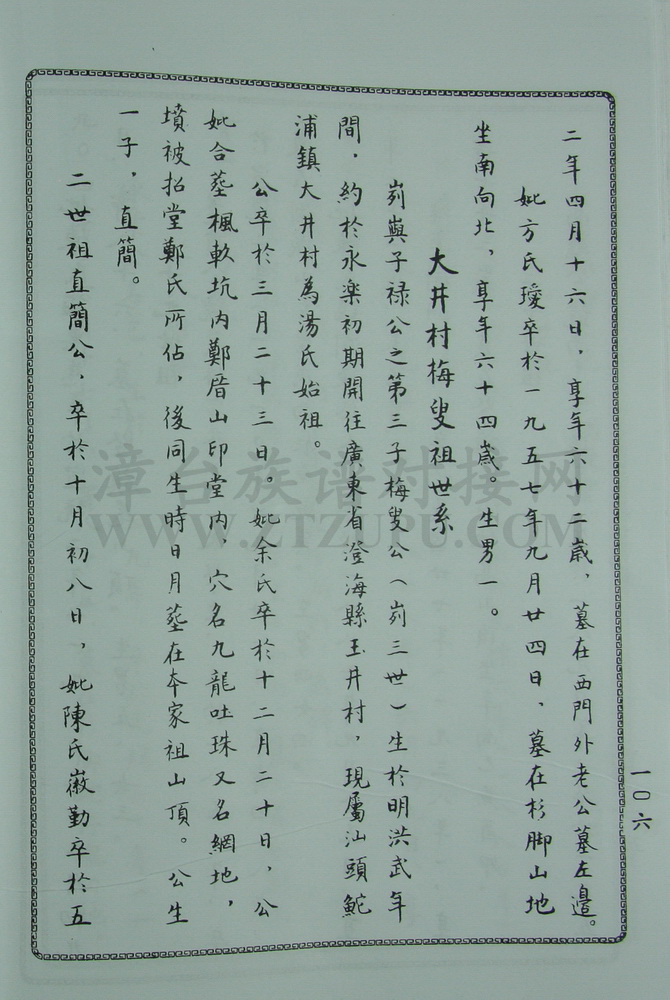 二年四月十六日，享年六十二歲，墓在西門外老公墓左邊。
妣方氏璦卒於一九五七年九月廿四日，墓在杉脚山地
坐南向北，享年六十四歲。生男一。
大井村梅叟祖世系
剡與子禄公之第三子梅叟公（剡三世）生於明洪武年
間．約於永楽初期開往廣東省澄海縣玉井村，現屬汕頭鮀
浦鎮大井村為湯氏始祖。
公卒於三月二十三日。妣余氏卒於十二月二十日，公
妣合塟楓軟坑内鄭厝山印堂内，穴名九龍吐珠又名網地，
墳被招堂鄭氏所佔，後同生時日月塟在夲家祖山頂。公生
一子，直簡。
二世祖直簡公，卒於十月初八日，妣陳氏徽勤卒於五
一〇六
漳台族谱对接网
WWW.ZTZUPU.COM